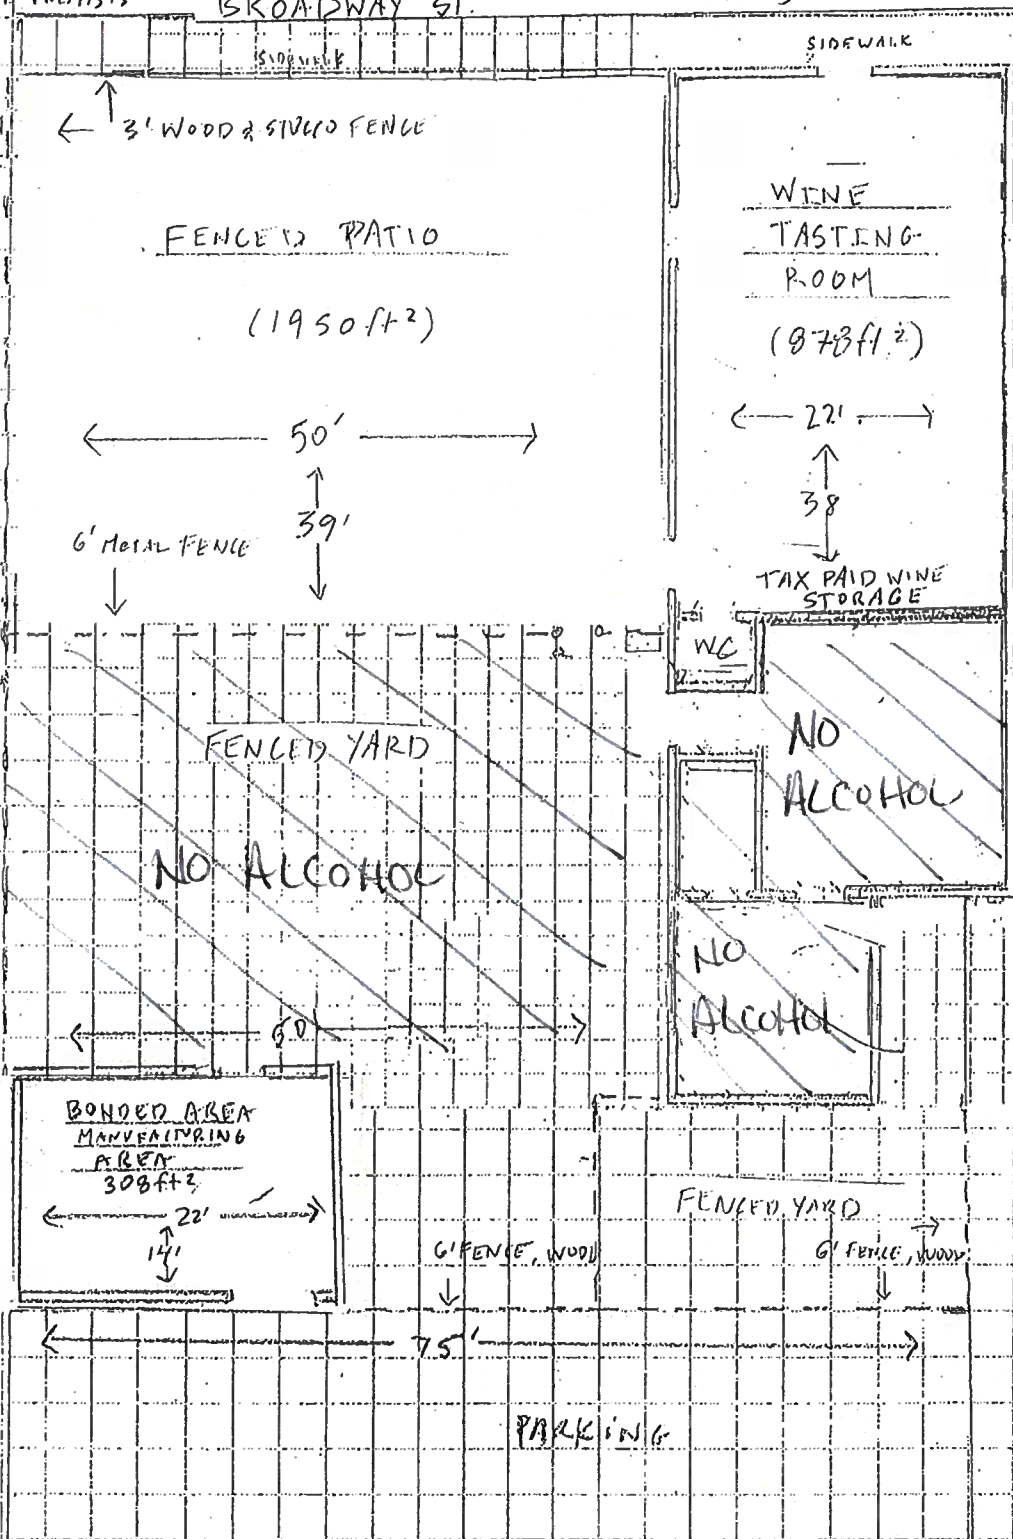 BROADWAY ST.
SIDEWALK
SIDEWALK
3' WOOD & STUCCO FENCE
FENCED PATIO
(1950ft²)
50'
39'
6' METAL FENCE
WINE
TASTING
ROOM
(878ft²)
22'
38
TAX PAID WINE
STORAGE
WC
FENCED YARD
NO ALCOHOL
50'
NO
ALCOHOL
NO
ALCOHOL
BONDED AREA
MANUFACTURING
AREA
308ft2
22'
14'
FENCED YARD
6' FENCE, WOOD
6' FENCE, WOOD
75'
PARKING